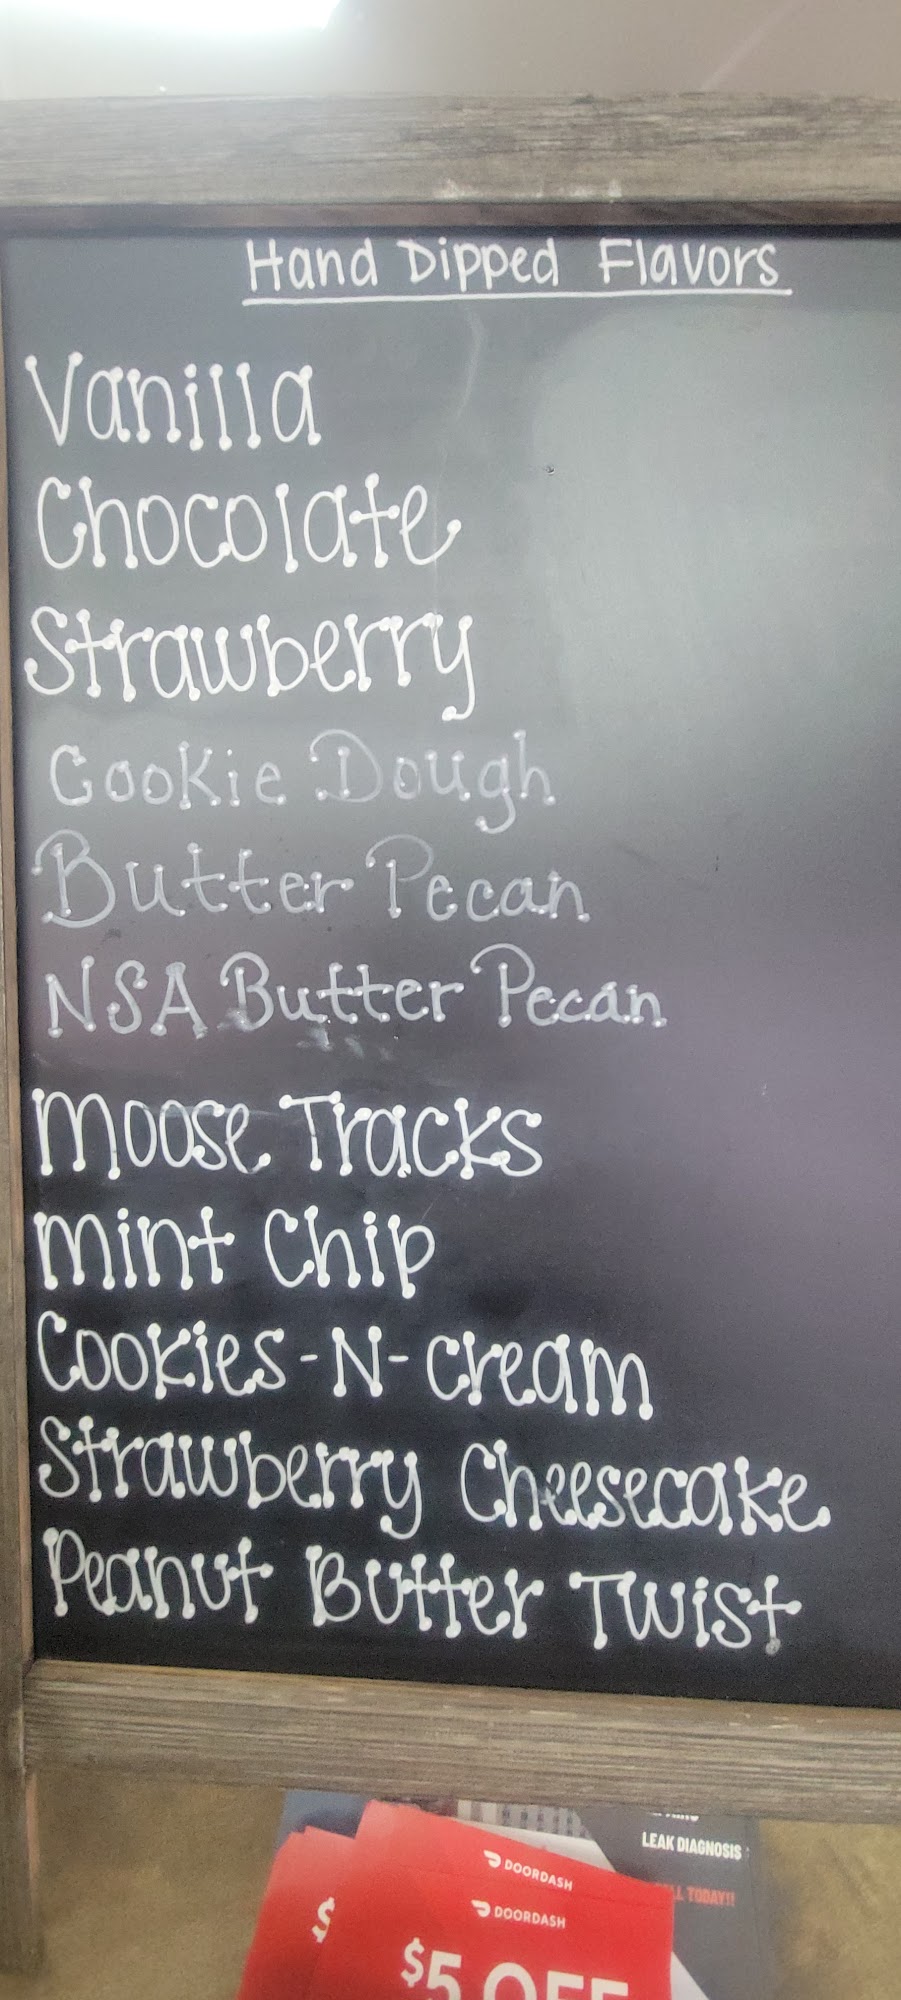 Hand Dipped Flavors
Vanilla
Chocolate
Strawberry
Cookie Dough
Butter Pecan
NSA Butter Pecan
Moose Tracks
Mint Chip
Cookies-N-Cream
Strawberry Cheesecake
Peanut Butter Twist
LEAK DIAGNOSIS
TODAY!!
DOORDASH
DOORDASH
$
$5 OFF